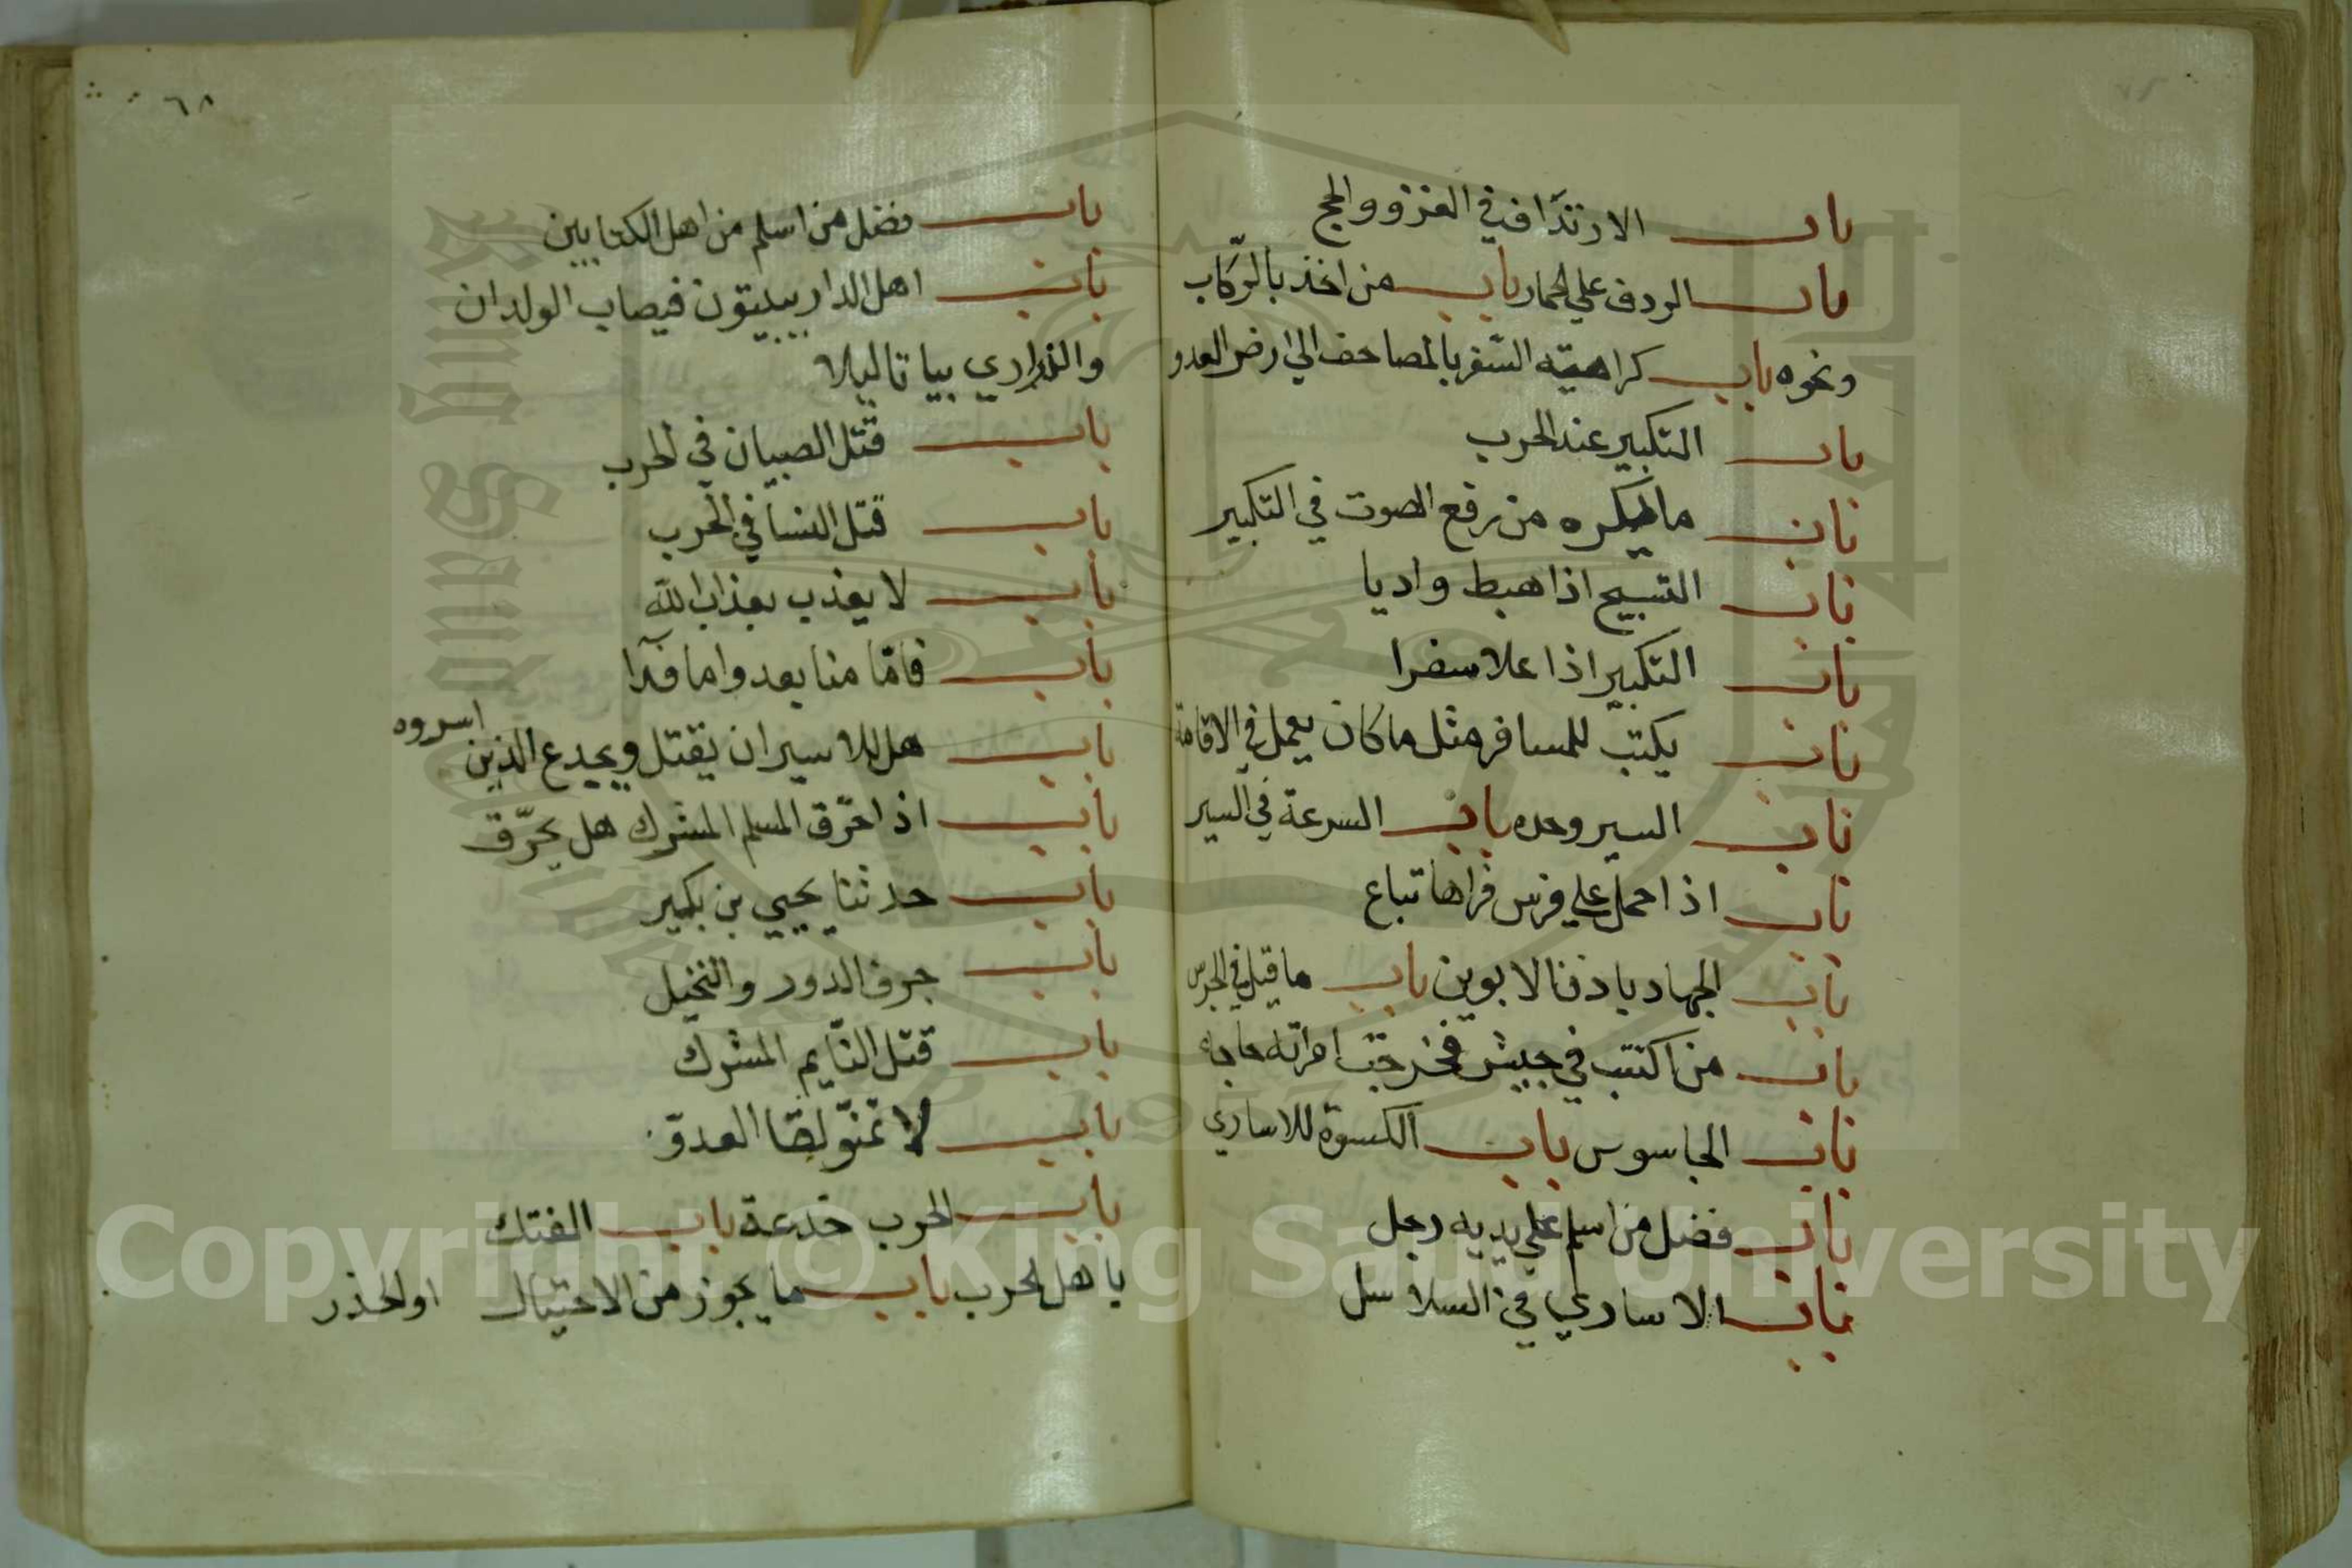 باب الارتداف في الغزو والحج
باب الردف علي الحمار باب من اخذ بالركاب
ونحوه باب كراهية السفر بالمصاحف الي ارض العدو
باب التكبير عند الحرب
باب ما يكره من رفع الصوت في التكبير
باب التسبيح اذا هبط واديا
باب التكبير اذا علا سفرا
باب يكتب للمسافر مثل ما كان يعمل في الاقامة
باب السير وحده باب السرعة في السير
باب اذا حمل علي فرس فراها تباع
باب الجهاد باذن الابوين باب ما قيل في الجرس
باب من اكتتب في جيش فخرجت امراته حاجة
باب الجاسوس باب الكسوة للاساري
باب فضل من اسلم علي يديه رجل
باب الاساري في السلاسل
٦٨
باب فضل من اسلم من اهل الكتابين
باب اهل الدار يبيتون فيصاب الولدان
والذراري بياتا ليلا
باب قتل الصبيان في الحرب
باب قتل النسا في الحرب
باب لا يعذب بعذاب الله
باب فامّا منا بعد واما فدآ
باب هل للاسير ان يقتل ويخدع الذين اسروه
باب اذا حرّق المسلم المشرك هل يحرّق
باب حدثنا يحيي بن بكير
باب حرق الدور والنخيل
باب قتل النّايم المشرك
باب لا تمنّو لقا العدوّ
باب الحرب خدعة باب الفتك
باهل الحرب باب ما يجوز من الاحتيال او الحذر
Copyright © King Saud University